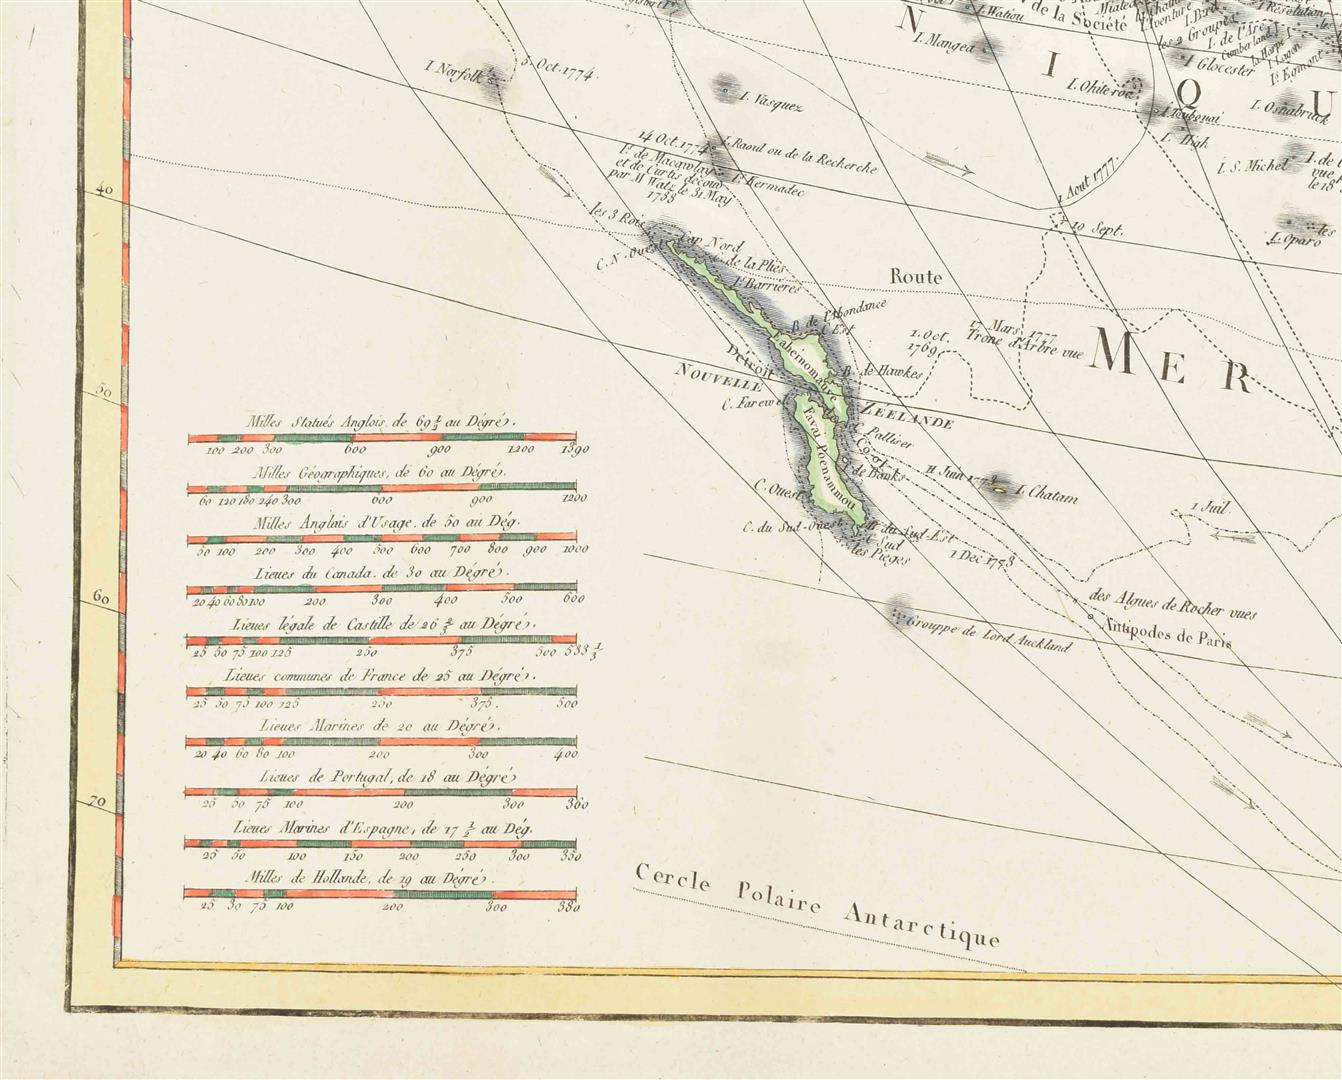 N
I
Q
U
MER
I. Watiou
de la Société
I. Mangea
I. Bird
I. Resolution
les 2 Groupes
I. de l'Arc
Cumberland I.
la Harpe I.
I. Lagon
I. Glocester
I. Egmont
I. Norfolk
5. Oct. 1774.
I. Vasquez
I. Ohiteroa
I. Toubouai
I. High
I. Osnabruck
I. S. Michel
I. de
vue
le 18
les
I. Oparo
14 Oct. 1774
I. Raoul ou de la Recherche
Is. de Macawlay
et de Curtis découv.
par M Watz le 31 May
1788
Is. Kermadec
1 Aout 1777.
10 Sept.
les 3 Rois
Cap Nord
C. N. Ouest
B. de la Plies
Is. Barrières
Route
B. de l'Abondance
C. Est
17 Mars. 1777
Trone d'Arbre vue
1. Oct.
1769
Eaheinomauve
B. de Hawkes
Détroit
de
Cook
NOUVELLE
ZÉELANDE
C. Farewel
C. Palliser
Tavai Poenammou
I. de Banks
11 Juin 1773
I. Chatam
C. Ouest
C. du Sud-Ouest
B. du Sud-Est
C. Sud
les Pieges
1 Dec. 1773
1 Juil.
des Algues de Rocher vues
Antipodes de Paris
Grouppe de Lord Auckland
40
50
60
70
Milles Statués Anglois, de 69 1/2 au Dégré.
100 200 300 600 900 1200 1390
Milles Géographiques, de 60 au Dégré.
60 120 180 240 300 600 900 1200
Milles Anglais d'Usage, de 50 au Dég.
50 100 200 300 400 500 600 700 800 900 1000
Lieues du Canada, de 30 au Dégré.
20 40 60 80 100 200 300 400 500 600
Lieues légale de Castille de 26 2/3 au Dégré.
25 50 75 100 125 250 375 500 533 1/3
Lieues communes de France de 25 au Dégré.
25 50 75 100 125 250 375. 500
Lieues Marines de 20 au Dégré.
20 40 60 80 100 200 300 400
Lieues de Portugal, de 18 au Dégré
25 50 75 100 200 300 360
Lieues Marines d'Espagne, de 17 1/2 au Dég.
25 50 100 150 200 250 300 350
Milles de Hollande, de 19 au Dégré.
25 50 75 100 200 300 380
Cercle Polaire Antarctique